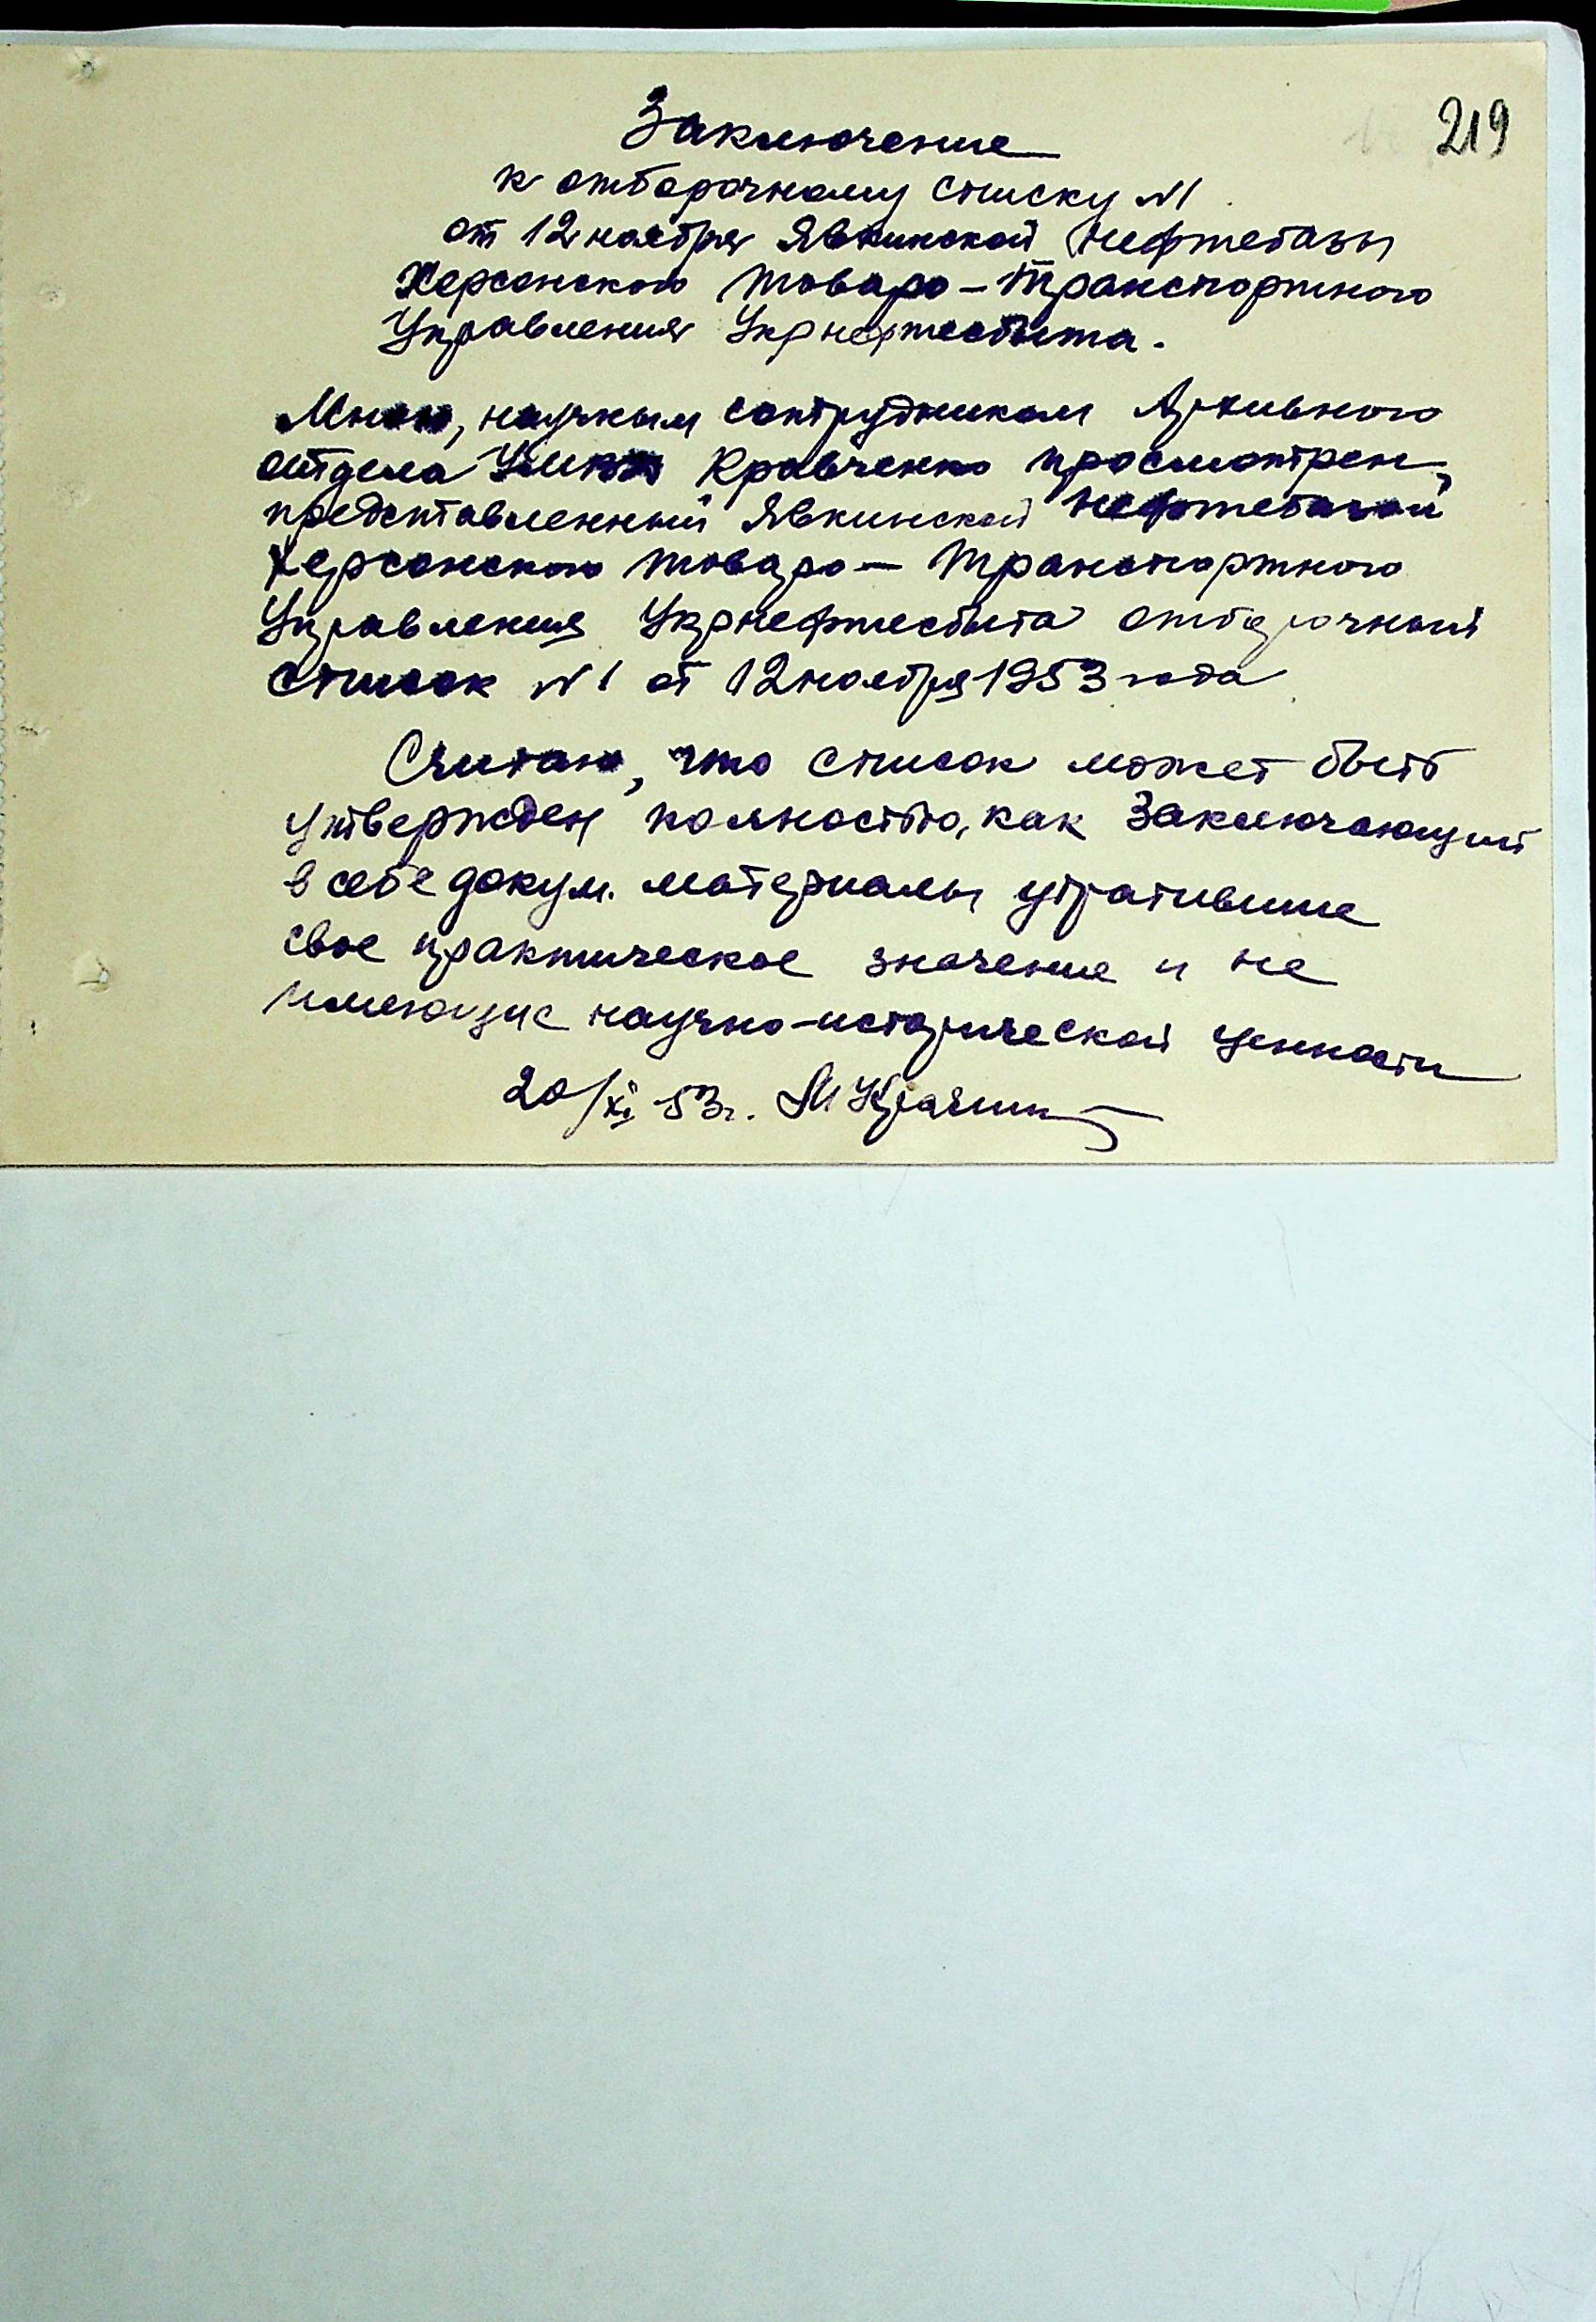 219
Заключение
к отборочному списку №1
от 12 ноября Явкинской Нефтебазы
Херсонского товаро-транспортного
Управления Укрнефтесбыта.
Мною, научным сотрудником Архивного
отдела Кравченко просмотрен,
представленный Явкинской Нефтебазой
Херсонского товаро-транспортного
Управления Укрнефтесбыта отборочный
список №1 от 12 ноября 1953 года
Считаю, что список может быть
утвержден полностью, как заключающий
в себе докум. материалы утратившие
свое практическое значение и не
имеющие научно-исторической ценности
20/XI 53г.